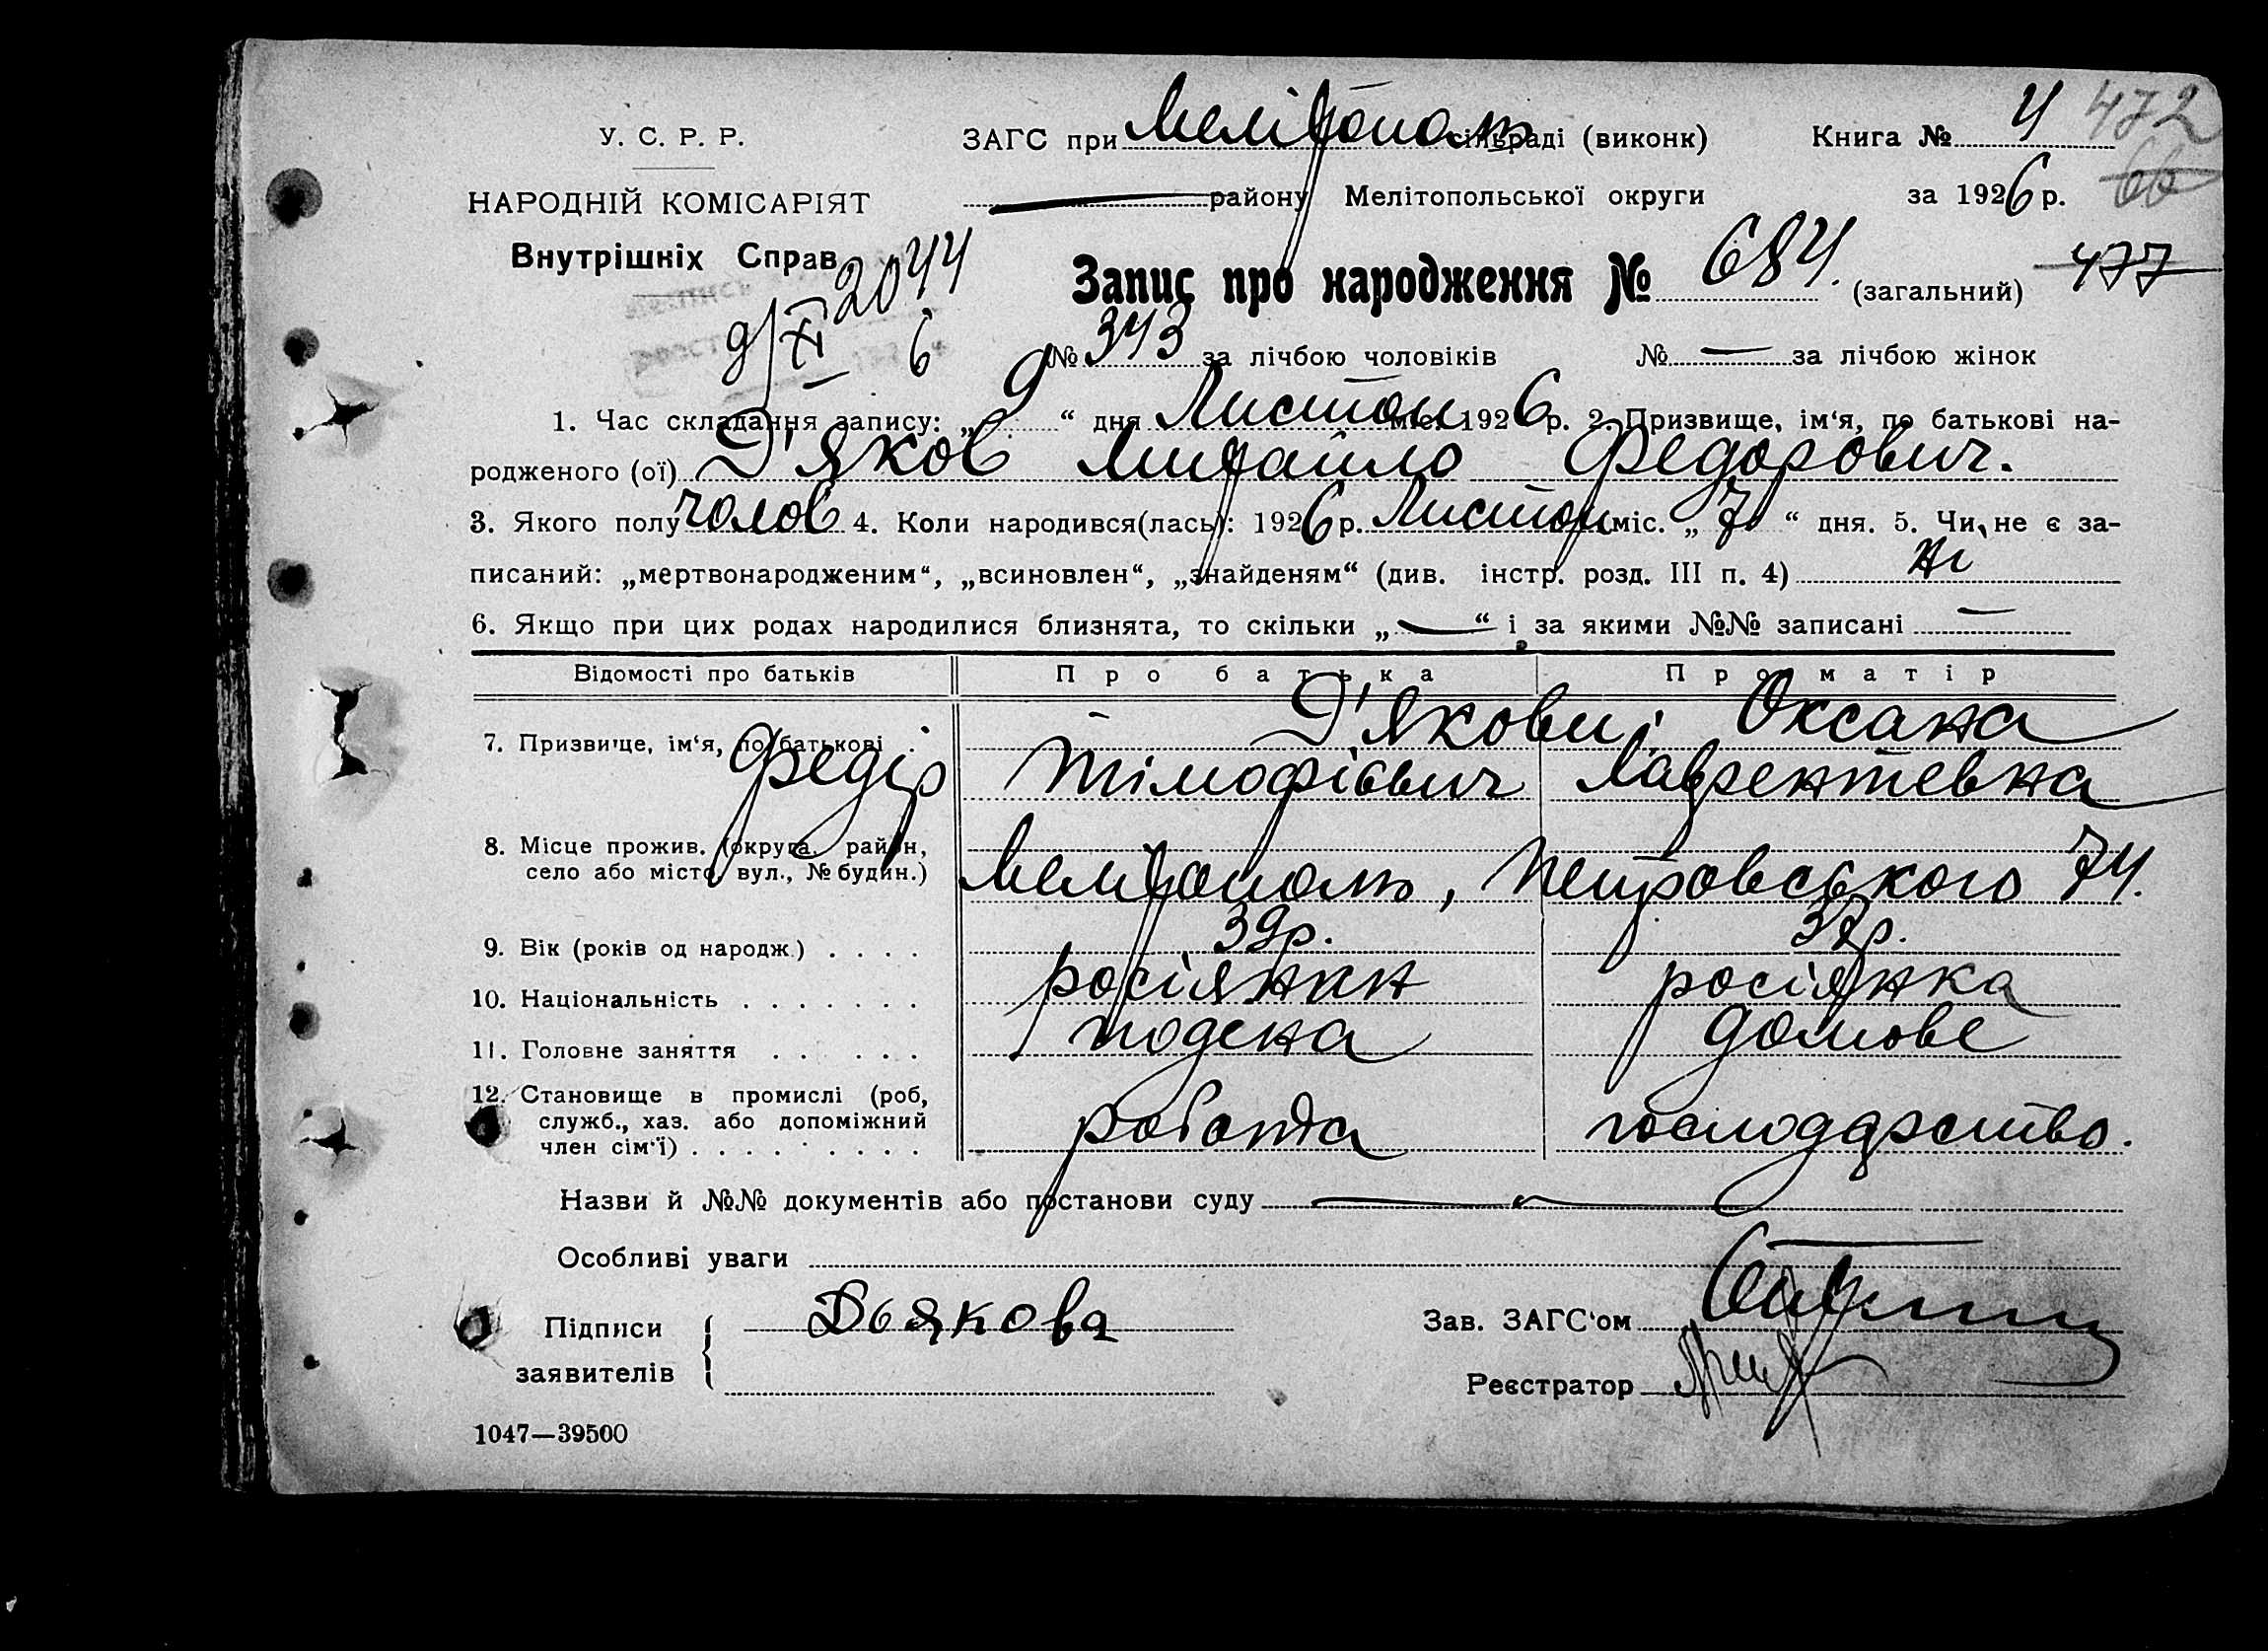 У. С. Р. Р.
НАРОДНІЙ КОМІСАРІЯТ
Внутрішніх Справ
2044
9/XI 6
ЗАГС при Мелітополь сільраді (виконк) Книга № 4 472
— району Мелітопольської округи за 1926 р. 66
Запис про народження № 684. (загальний) 477
№ 343 за лічбою чоловіків № — за лічбою жінок
1. Час складання запису: „ 9 “ дня Листоп міс. 1926 р. 2. Призвище, ім‘я, по батькові на-
родженого (ої) Д'яков Михайло Федорович.
3. Якого полу чолов 4. Коли народився(лась): 1926 р. Листоп міс. „ 7 “ дня. 5. Чи не є за-
писаний: „мертвонародженим“, „всиновлен“, „знайденям“ (див. інстр. розд. III п. 4) Ні
6. Якщо при цих родах народилися близнята, то скільки „ — “ і за якими №№ записані —
Відомості про батьків Про батька Про матір
7. Призвище, ім‘я, по батькові . Д'якови: Оксана
Федір Тімофієвич Лаврентевна
8. Місце прожив. (округа, район,
село або місто, вул., № будин.) Мелітополь, Петровського 74.
9. Вік (років од народж.) . . . . 39р. 38р.
10. Національність . . . . . . . росіянин росіянка
11. Головне заняття . . . . . . подена домове
12. Становище в промислі (роб,
служб., хаз. або допоміжний
член сім‘ї) . . . . . . . . робота господарство.
Назви й №№ документів або постанови суду —
Особливі уваги
Підписи Дьякова Зав. ЗАГС‘ом
заявителів Реєстратор
1047—39500